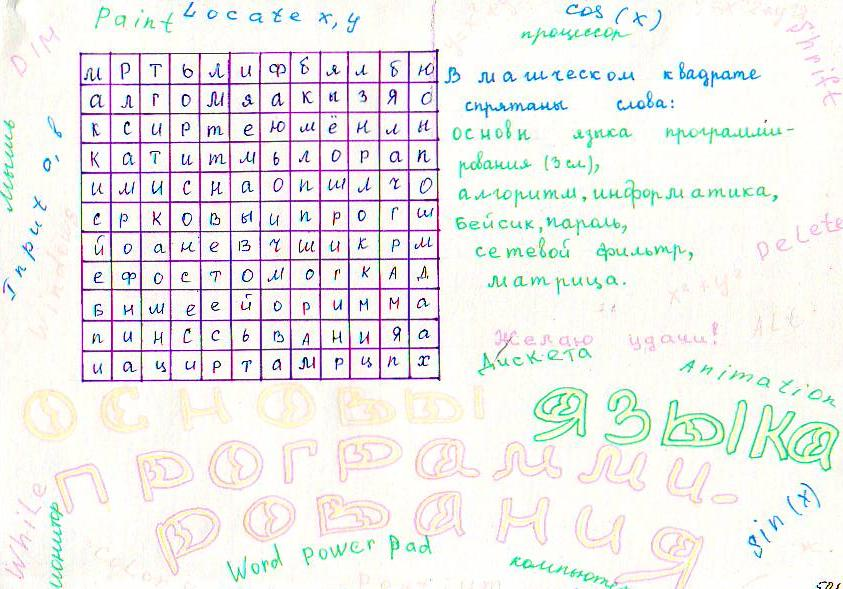 Paint Locate x, y
cos(x)
процессор
DIM
Shrift
Мышь
Input a, b
Windows
м р т ь л и ф б я л б ю
а л г о м я а к ы з я о
к с и р т е ю м ё н л н
к а т и т м ь л о р а п
и м и с н а о п ш л ч о
с р к о в ы и п р о г ш
й о а н е в ч ш и к р м
е ф о с т о м о г к а д
б н ш е е й о р и м м а
п и н с с ь в а н и я а
и а ц и р т а м р ц п х
В магическом квадрате
спрятаны слова:
основы языка программи-
рования (3 сл),
алгоритм, информатика,
Бейсик, пароль,
сетевой фильтр,
матрица.
Delete
x² + y²
Alt
Желаю удачи!
Дискета
Animation
основы языка
программи-
рования
While
монитор
Word power pad
компьютер
sin(x)